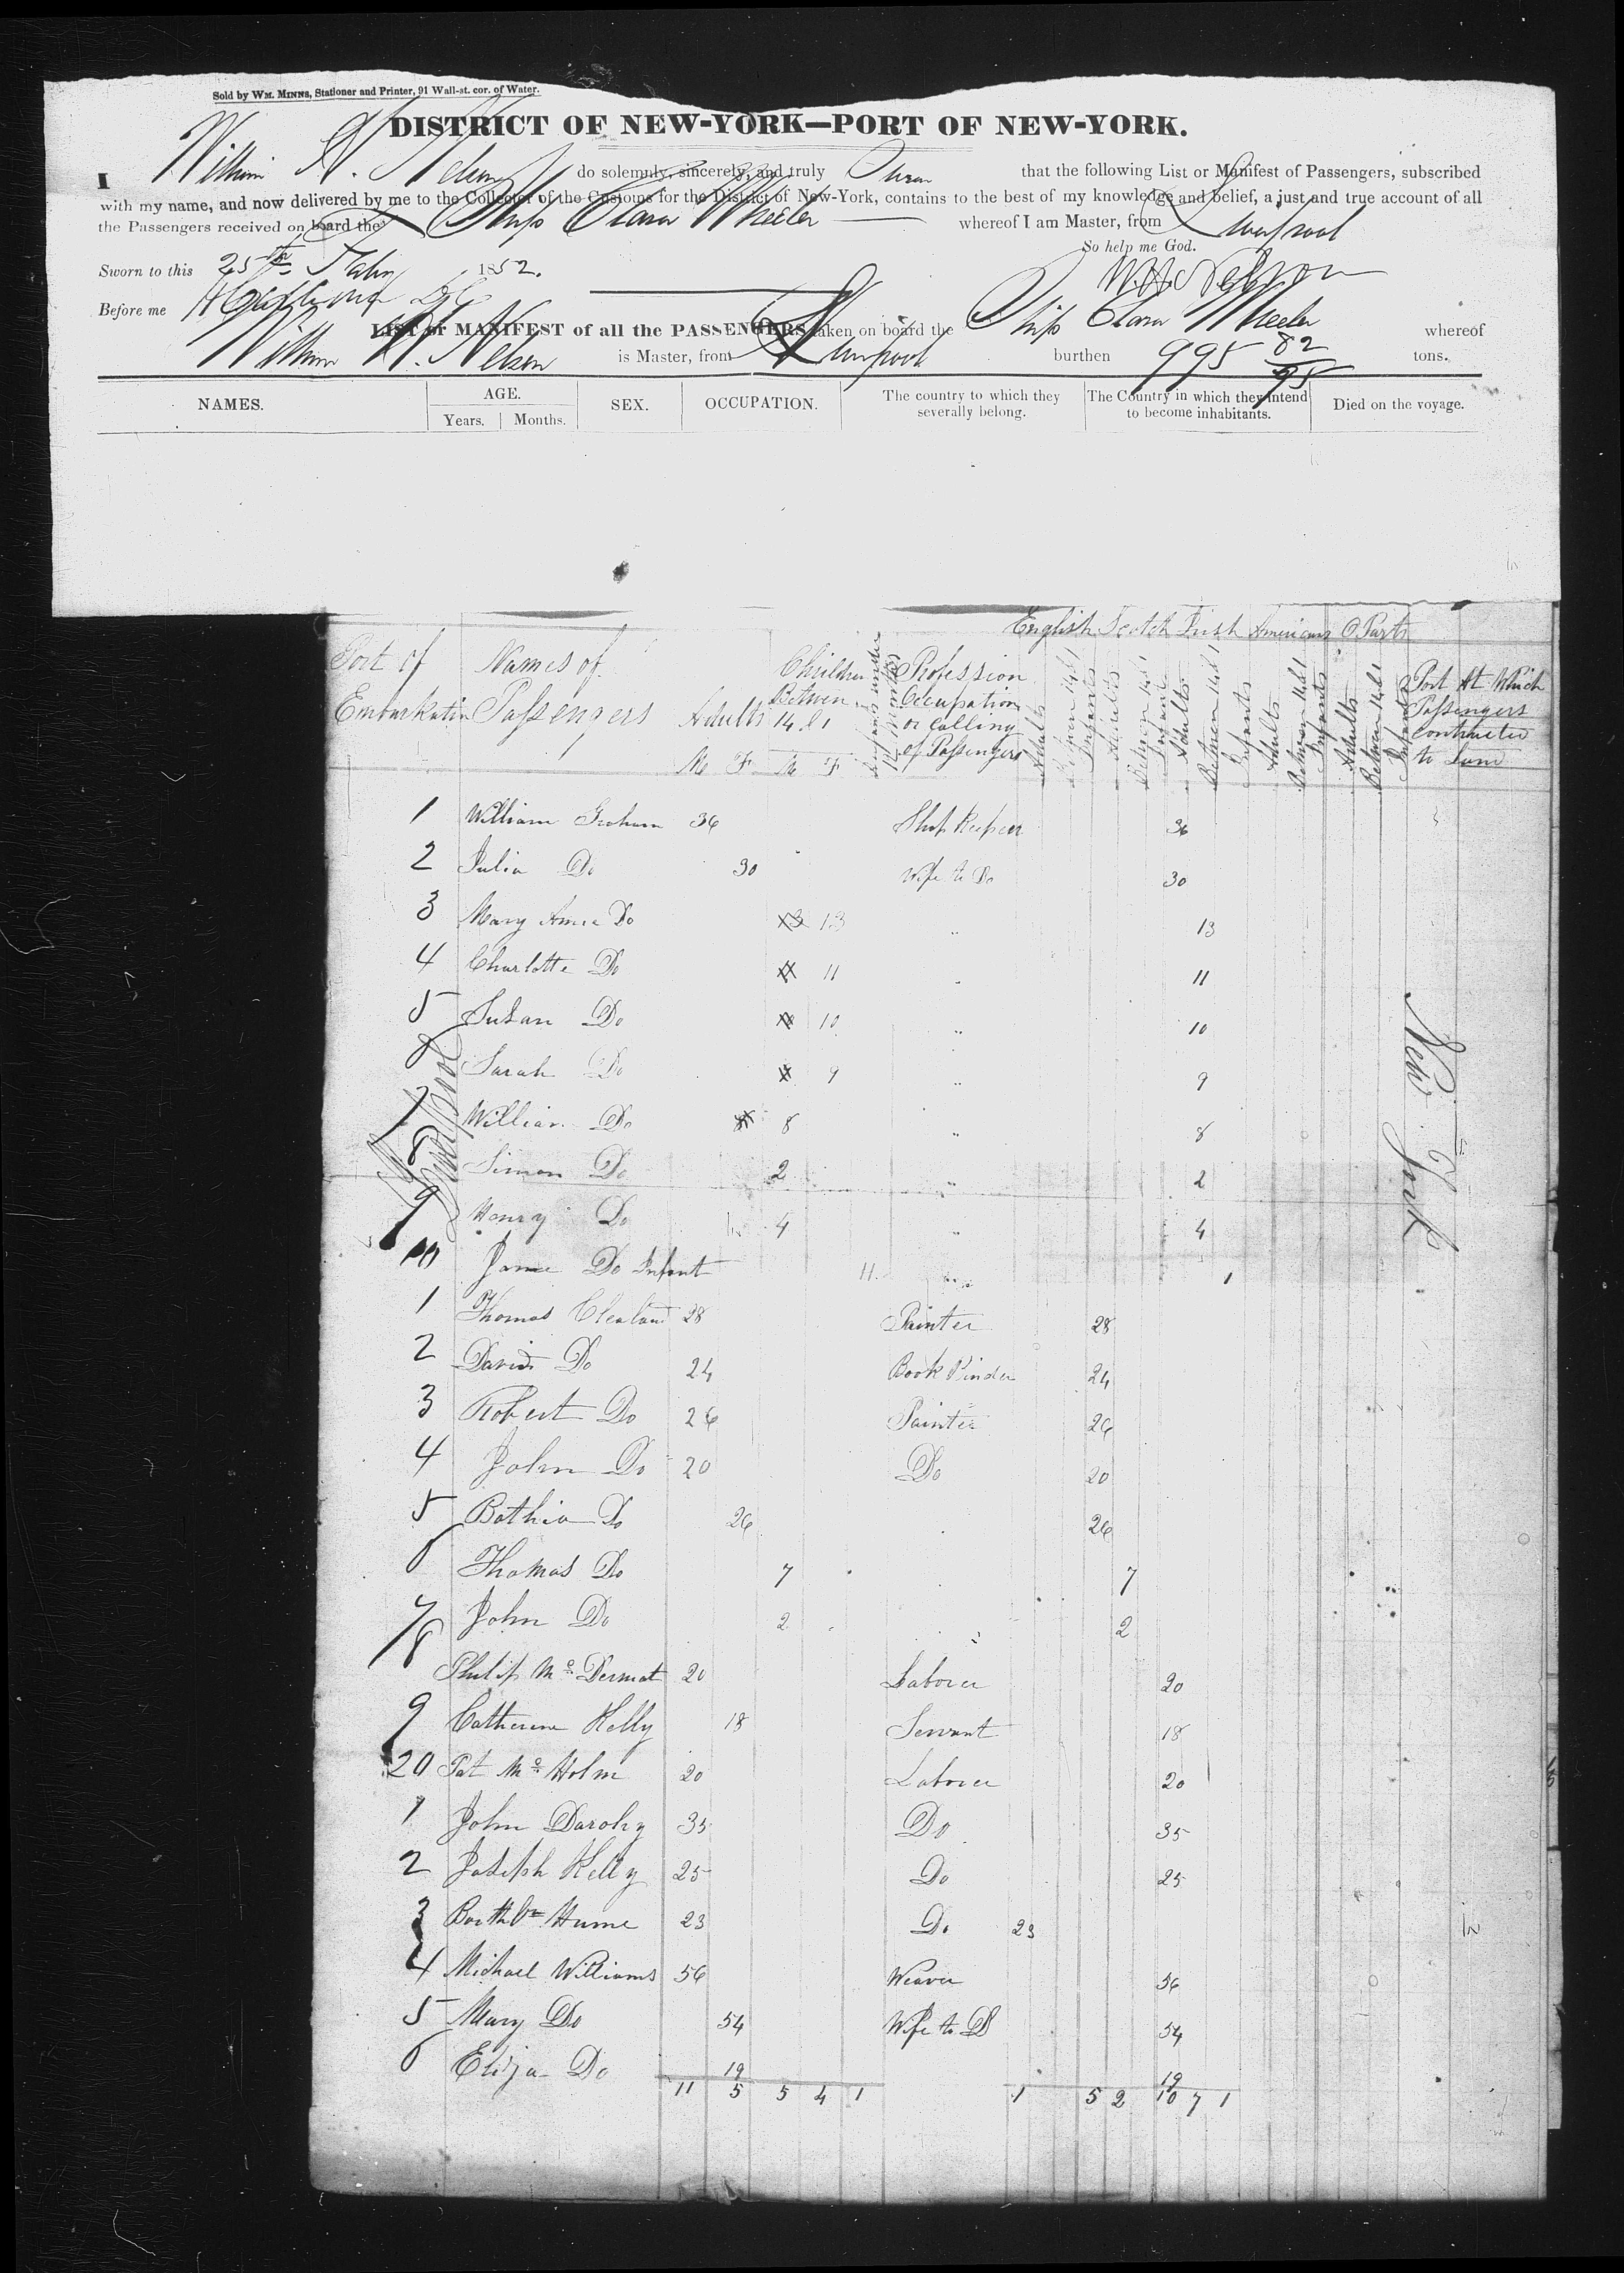 Sold by WM. MINNS, Stationer and Printer, 91 Wall-st. cor. of Water.
DISTRICT OF NEW-YORK—PORT OF NEW-YORK.
I William H. Nelson do solemnly, sincerely, and truly Swear that the following List or Manifest of Passengers, subscribed
with my name, and now delivered by me to the Collector of the Customs for the District of New-York, contains to the best of my knowledge and belief, a just and true account of all
the Passengers received on board the Ship Clara Wheeler whereof I am Master, from Liverpool
So help me God.
Sworn to this 25th 1852. W. H. Nelson
Before me
LIST or MANIFEST of all the PASSENGERS taken on board the Ship Clara Wheeler whereof
William H. Nelson is Master, from Liverpool burthen 995 82/95 tons.
NAMES. AGE. SEX. OCCUPATION. The country to which they severally belong. The Country in which they intend to become inhabitants. Died on the voyage.
Years. Months.
English Scotch Irish Americans O. Parts
Port of Embarkation Names of Passengers Adults Children Betwen 14 & 1 Infants under 12 Months Profession Occupation or calling of Passengers Adults Between 14 & 1 Infants Adults Between 14 & 1 Infants Adults Between 14 & 1 Infants Adults Between 14 & 1 Infants Adults Between 14 & 1 Infants Port At Which Passengers Contracted to Land
M F M F
Liverpool
New York
1 William Graham 36 Shop Keeper 36
2 Julia Do 30 Wife to Do 30
3 Mary Anne Do 13 13 " 13
4 Charlotte Do 11 " 11
5 Susan Do 10 " 10
6 Sarah Do 9 " 9
7 William Do 8 " 8
8 Simon Do 2 " 2
9 Henry Do 4 " 4
10 Jane Do Infant 11 " 1
1 Thomas Cleland 28 Painter 28
2 David Do 24 Book Binder 24
3 Robert Do 26 Painter 26
4 John Do 20 Do 20
5 Bethia Do 26 26
6 Thomas Do 7 7
7 John Do 2 2
8 Philip Mc Dermot 20 Laborer 20
9 Catherine Kelly 18 Servant 18
20 Pat Mc Holm 20 Laborer 20
1 John Darohy 35 Do 35
2 Joseph Kelly 25 Do 25
3 Barthw Hume 23 Do 23
4 Michael Williams 56 Weaver 56
5 Mary Do 54 Wife to Do 54
6 Eliza Do 19 19
11 5 5 4 1 1 5 2 10 7 1